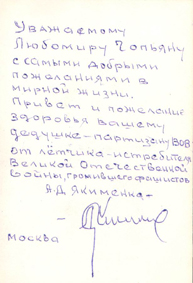 Уважаемому
Любомиру Чопьяну
с самыми добрыми
пожеланиями в
мирной жизни.
Привет и пожелание
здоровья вашему
дедушке-партизану ВОВ
от лётчика-истребителя
Великой Отечественной
войны, громившего фашистов
А.Д. Якименко-
Москва